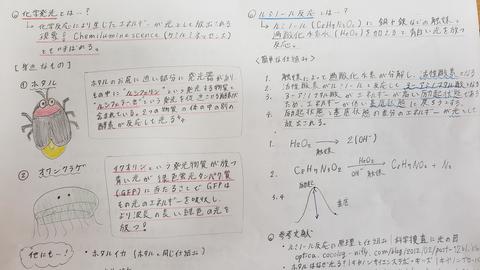 ◎ 化学発光とは…?
→ 化学反応により生じたエネルギーが光として放出される
現象。Chemiluminescence (ケミルミネッセンス)
とも呼ばれる。
[身近なもの]
① ホタル
ホタルのお尻に近い部分に発光器があり
その中に"ルシフェリン"という発光する物質と
ルシフェラーゼという発光を促
含まれている。2つの物質
酵素が反応して光る。
② オワンクラゲ
イクオリンという発光物質が放つ
青い光が緑色蛍光タンパク質
(GFP)に当たることでGFPは
そのエネルギーを吸収し、
より波長の長い緑色の光を
放つ!
他にも…!
・ホタルイカ(ホタルと同じ仕組み)
◎ ルミノール反応とは…?
→ ルミノール(C8H7N3O2)に銅や鉄などの触媒と
過酸化水素水(H2O2)を加えると青白い光を放つ
反応。
<簡単な仕組み>
1. 触媒によって過酸化水素が分解し、活性酸素になる
2. 活性酸素がルミノールと反応して
3.
ためエネルギーが低い基底状態に戻ろうとする。
4. 励起状態と基底状態の差分のエネルギーが光として
放出される。
1. H2O2 → 2(OH⁻)
触媒
2. C8H7N3O2 → + N2
H2O2
触媒
3.4
励起
基底
◎ 参考文献
・ルミノール反応に原理と仕組み|科学捜査に光の目
optica.cocolog-nifty.com/blog/2012/02/post-
・ホタルはなぜ光る?